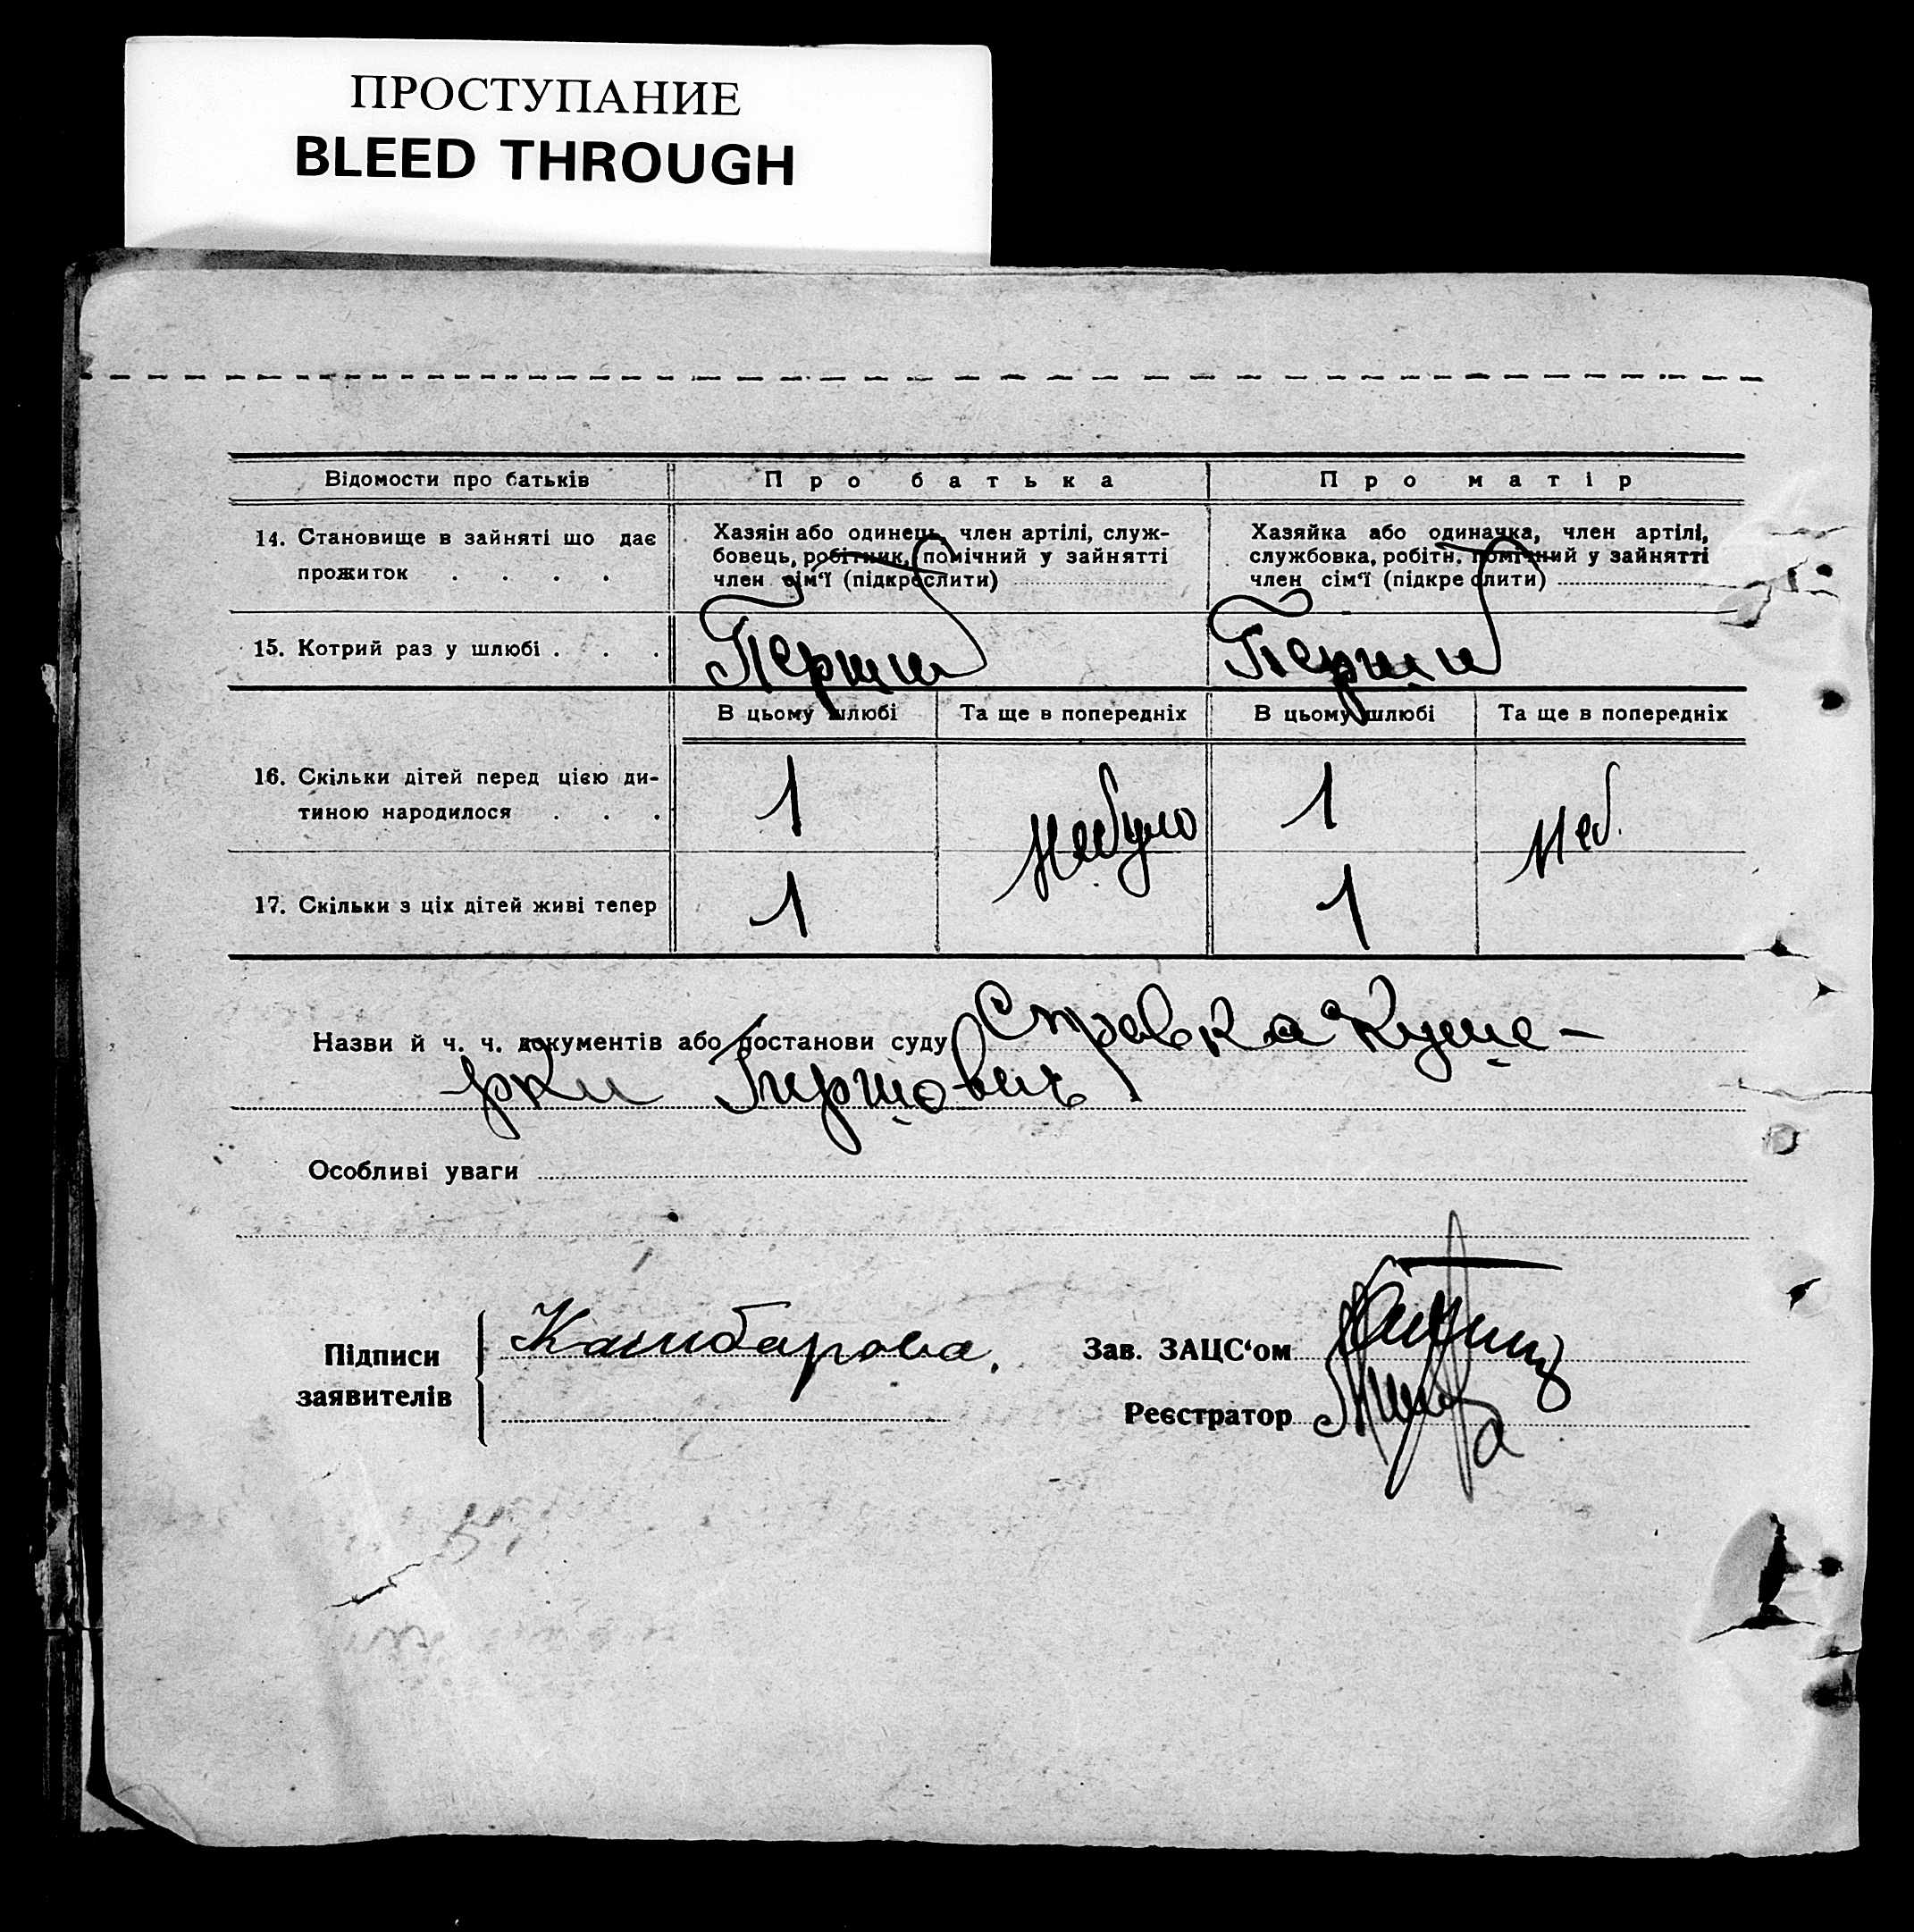 ПРОСТУПАНИЕ
BLEED THROUGH
Відомости про батьків
Про батька
Про матір
14. Становище в зайняті що дає
прожиток . . . .
Хазяін або одинець, член артілі, служ-
бовець, робітник, помічний у зайнятті
член сім'ї (підкреслити)
Хазяйка або одиначка, член артілі,
службовка, робітн. помічний у зайнятті
член сім'ї (підкре слити)
15. Котрий раз у шлюбі . . .
Перший
Перший
В цьому шлюбі
Та ще в попередніх
В цьому шлюбі
Та ще в попередніх
16. Скільки дітей перед цією ди-
тиною народилося . . .
1
Небуло
1
Неб.
17. Скільки з ціх дітей живі тепер
1
1
Назви й ч. ч. документів або постанови суду Справка Куше-
рки
Особливі уваги
Підписи
заявителів
Зав. ЗАЦС'ом
Реєстратор